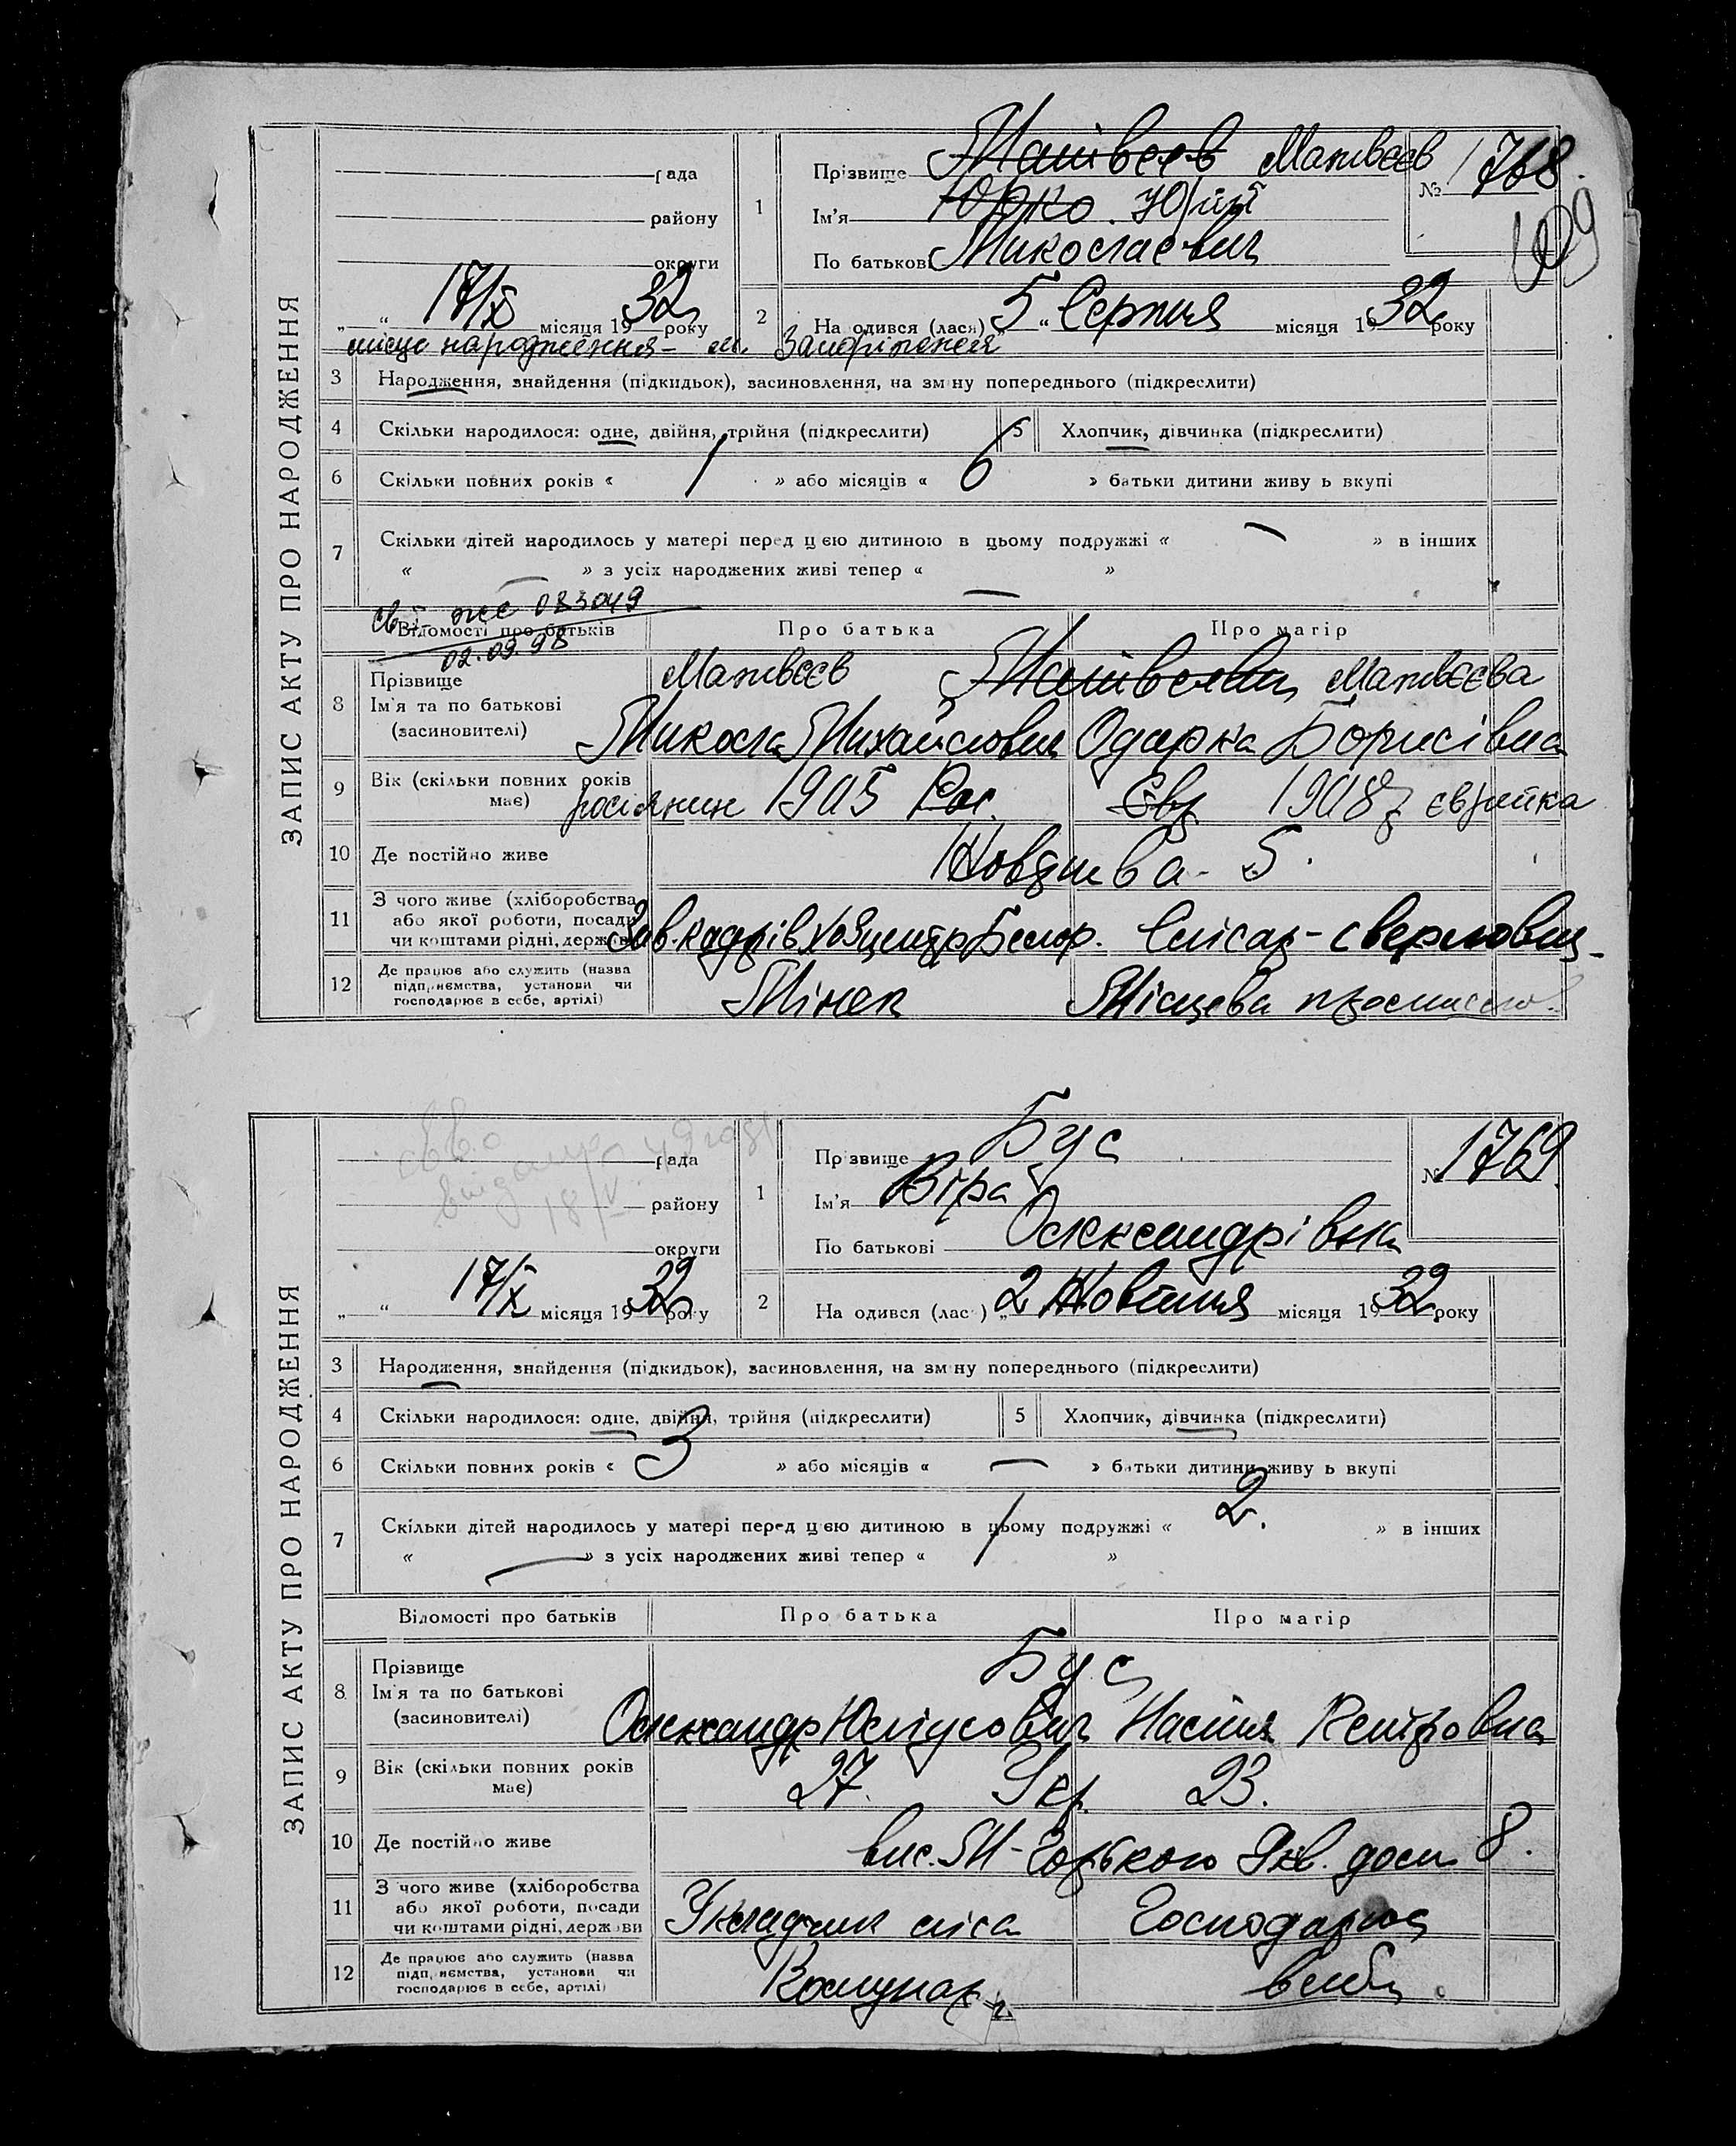 ЗАПИС АКТУ ПРО НАРОДЖЕННЯ
рада
району
округи
„ “ 17/X місяця 1932 року
1
Прізвище Матвєєв Матвєєв
Ім'я Юрко. Юрій
По батькові Миколаєвич
№ 1768.
109
2
На одився (лася) „5“ Серпня місяця 1932 року
місце народження - м. Запоріжжя
3 Народження, знайдення (підкидьок), засиновлення, на зміну попереднього (підкреслити)
4 Скільки народилося: одне, двійня, трійня (підкреслити)
5 Хлопчик, дівчинка (підкреслити)
6 Скільки повних років « 1 » або місяців « 6 » батьки дитини живуть вкупі
7 Скільки дітей народилось у матері перед цією дитиною в цьому подружжі « — » в інших
« — » з усіх народжених живі тепер « — »
083049
02.09.98
Відомості про батьків
Про батька
Про матір
8 Прізвище
Ім'я та по батькові
(засиновителі)
Матвєєв
Матвєєва
Микола Михайлович
Одарка Борисівна
9 Вік (скільки повних років має)
росіянин 1905 Рос.
Євр 1908р єврейка
10 Де постійно живе
5.
11 З чого живе (хліборобства або якої роботи, посади чи коштами рідні, держави
Зав. кадрів
Слісар-сверловщ.
12 Де працює або служить (назва підприємства, установи чи господарює в себе, артілі)
Місцева промисло.
ЗАПИС АКТУ ПРО НАРОДЖЕННЯ
рада
району
18/V
округи
„ “ 17/X місяця 1932 року
1
Прізвище Бус
Ім'я Віра
По батькові Олександрівна
№ 1769.
2
На одився (лас ) „2 Жовтня місяця 1932 року
3 Народження, знайдення (підкидьок), засиновлення, на зміну попереднього (підкреслити)
4 Скільки народилося: одне, двійня, трійня (підкреслити)
5 Хлопчик, дівчинка (підкреслити)
6 Скільки повних років « 3 » або місяців « — » батьки дитини живуть вкупі
7 Скільки дітей народилось у матері перед цією дитиною в цьому подружжі « 2. » в інших
« — » з усіх народжених живі тепер « 1 »
Відомості про батьків
Про батька
Про матір
8 Прізвище
Ім'я та по батькові
(засиновителі)
Бус
Олександр Юліусович
Настя Петровна
9 Вік (скільки повних років має)
27. Укр. 23.
10 Де постійно живе
вис. М-Горького 9 кв. дом 8.
11 З чого живе (хліборобства або якої роботи, посади чи коштами рідні, держави
Укладчик ліса
Господарює
12 Де працює або служить (назва підприємства, установи чи господарює в себе, артілі)
Комунар